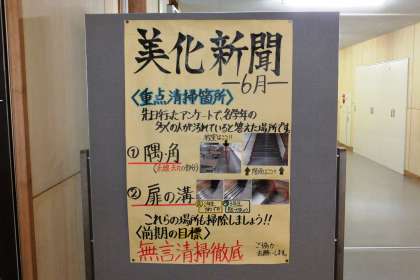 美化新聞
―6月―
〈重点清掃箇所〉
先日行ったアンケートで、各学年の
多くの人が汚れていると答えた場所です。
① 隅・角
② 扉の溝
これらの場所も掃除しましょう!!
〈前期の目標〉
無言清掃徹底
ご協力
お願いします。